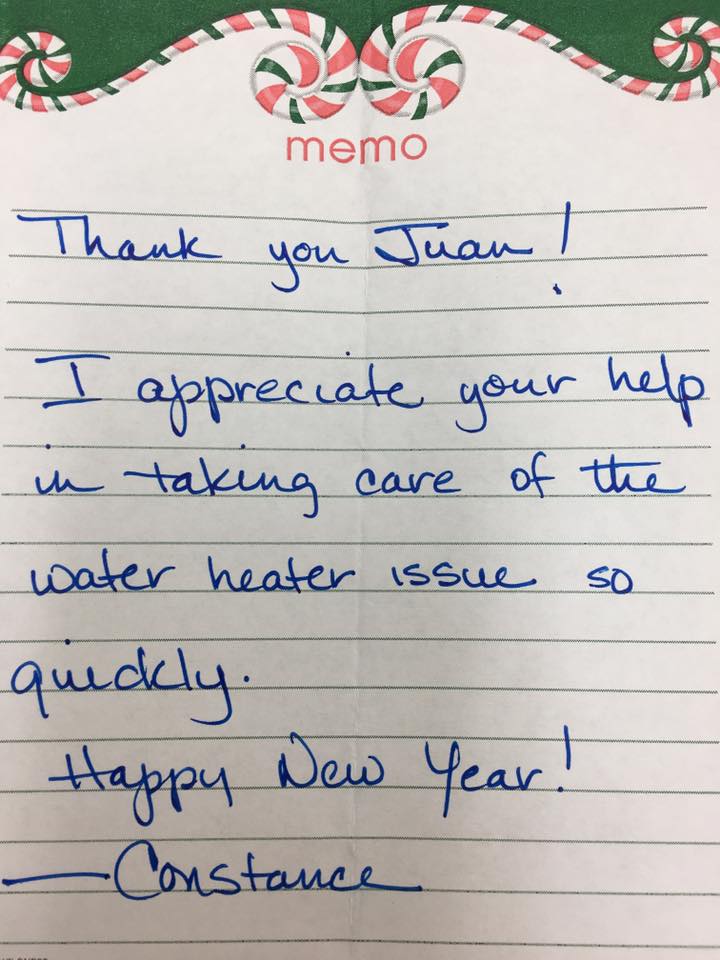 memo
Thank you Juan!
I appreciate your help
in taking care of the
water heater issue so
quickly.
Happy New Year!
—Constance